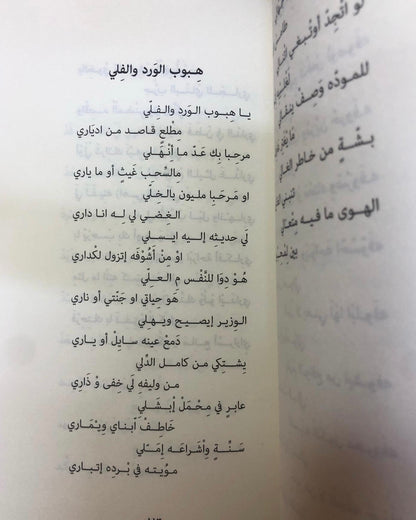 هِبوب الوَرد والفِلي
يا هبوب الوَرد والفِلّي
مطْلعٍ قاصد من ادياري
مرحبا بِك عَدّ ما أنْهَلي
مالسْحب غَيثٍ أو ما ياري
او مَرحَبا مليون بالخِلّي
الغِضي لي له انا داري
لَي حديثِه إليه ايسلي
او مِنْ أشُوفَه اِتزول لكْداري
هُو دِوَا للنَّفْس مِ العـلّي
هَو حياتي او جَنّتي أو ناري
الوزير إيصيح ويهلي
دَمعْ عينه سايِلْ أو ياري
يِشتِكي من كامل الدْلي
من وليفهِ لي خِفى وْ ذَاري
عابرٍ في مِحْمَلْ اِبشَلي
خَاطِفْ اَبناي وِيْمَاري
سَنّةٍ واِشراعَه اِمتَلي
مويته في بِرْدِه اِتباري
لو اتجِدْ أو تِبغي
للمودّه وَصِفْ
بشّةٍ من خاطر الغالي
الهوى ما فيه